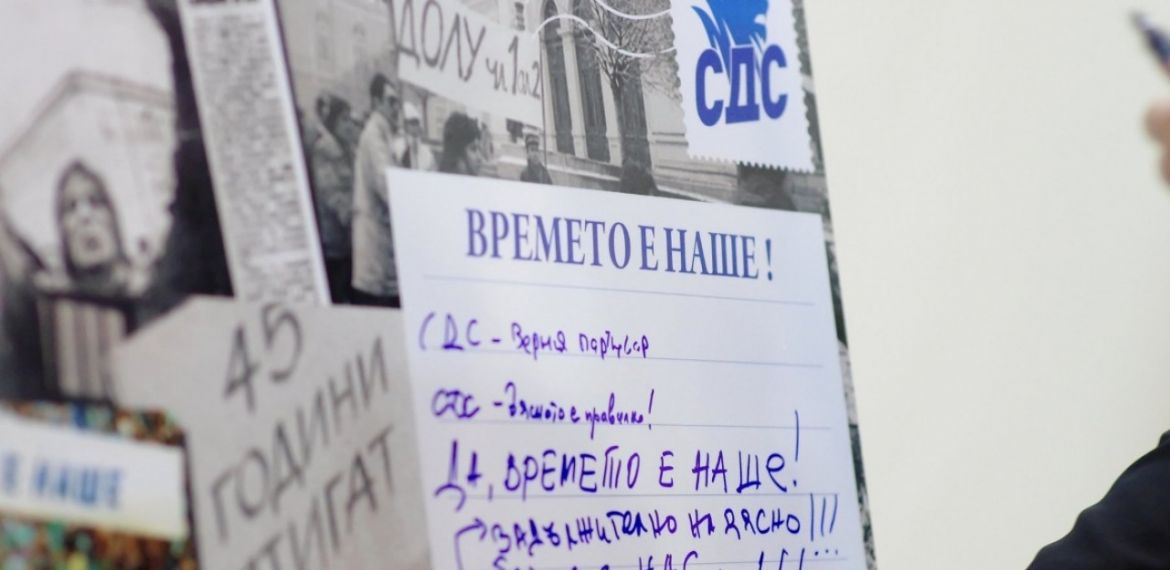 ДОЛУ чл 1 и 2
СДС
ВРЕМЕТО Е НАШЕ!
СДС - Верния партньор
СДС - Дясното е правилно!
ДА, ВРЕМЕТО Е НАШЕ!
ЗАДЪЛЖИТЕЛНО НАДЯСНО!!!
45
ГОДИНИ
СТИГАТ
Е НАШЕ